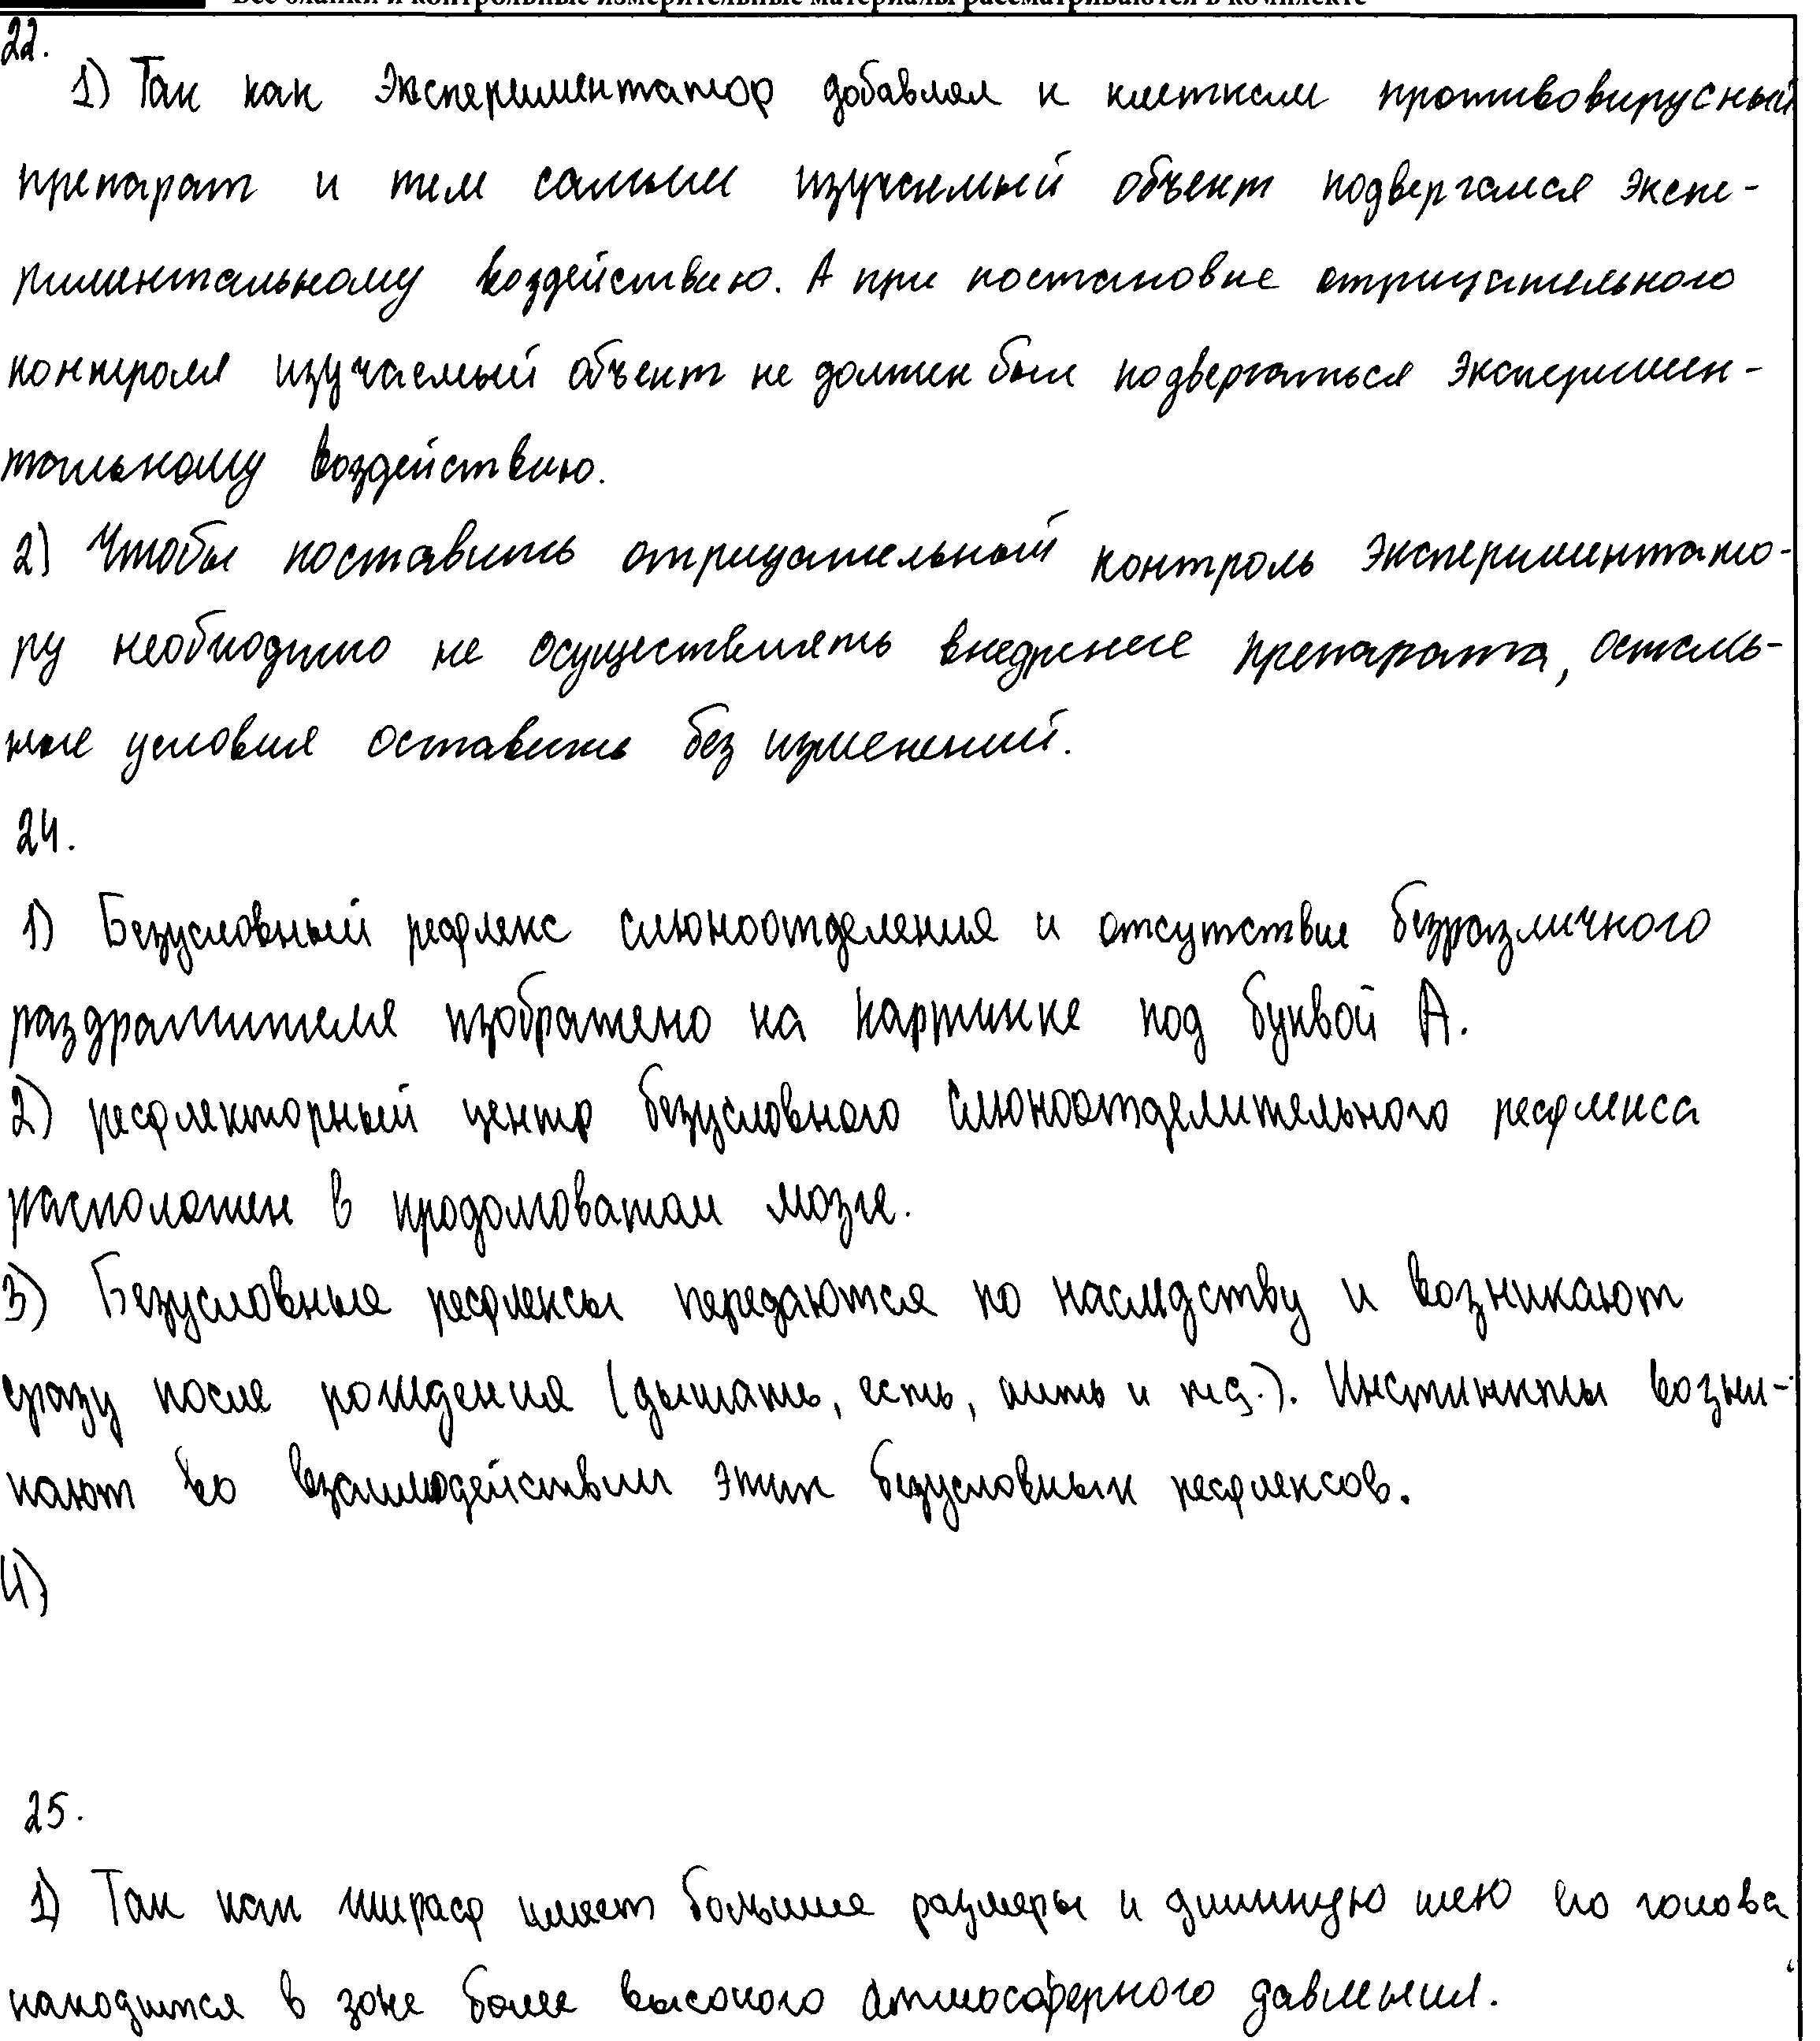 Все бланки и контрольные измерительные материалы рассматриваются в комплекте
22.
1) Так как экспериментатор добавлял к клеткам противовирусный
препарат и тем самым изучаемый объект подвергался экспе-
риментальному воздействию. А при постановке отрицательного
контроля изучаемый объект не должен был подвергаться эксперимен-
тальному воздействию.
2) Чтобы поставить отрицательный контроль экспериментато-
ру необходимо не осуществлять внедрение препарата, осталь-
ные условия оставить без изменений.
24.
1) Безусловный рефлекс слюноотделения и отсутствие безразличного
раздражителя изображено на картинке под буквой А.
2) рефлекторный центр безусловного слюноотделительного рефлекса
расположен в продолговатом мозге.
3) Безусловные рефлексы передаются по наследству и возникают
сразу после рождения (дышать, есть, пить и т.д.). Инстинкты возни-
кают во взаимодействии этих безусловных рефлексов.
4)
25.
1) Так как жираф имеет большие размеры и длинную шею его голова
находится в зоне более высокого атмосферного давления.